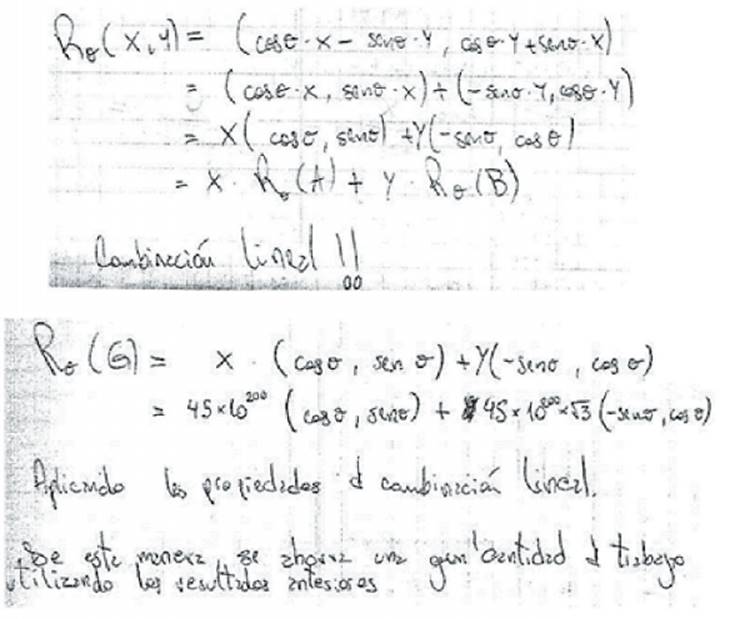 Rθ(x,y) = (cosθ·x − senθ·y, cosθ·y + senθ·x)
= (cosθ·x, senθ·x) + (−senθ·y, cosθ·y)
= x(cosθ, senθ) + y(−senθ, cosθ)
= x · Rθ(A) + y · Rθ(B)
Combinación lineal !!
Rθ(G) = x · (cosθ, senθ) + y(−senθ, cosθ)
= 45×10²⁰⁰ (cosθ, senθ) + 45×10²⁰⁰×√3 (−senθ, cosθ)
Aplicando las propiedades d combinación lineal.
De esta manera, se ahorra una gran cantidad d trabajo
utilizando los resultados anteriores.